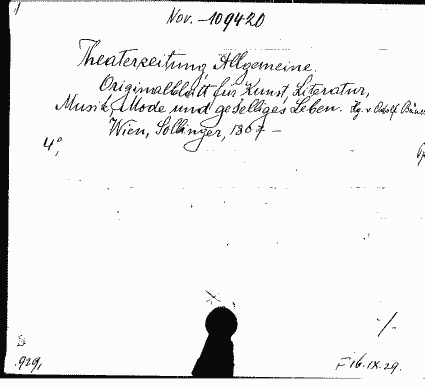 Nov. - 109420
Theaterzeitung, Allgemeine.
Originalblatt für Kunst, Literatur,
Musik, Mode und geselliges Leben. Hg. v. Adolf Bäuer
Wien, Sollinger, 1807 -
4°,
929,
F 16. IX. 29.